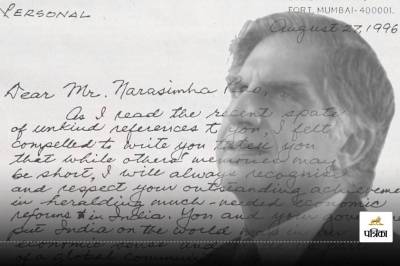 PERSONAL
FORT, MUMBAI-400001.
August 27, 1996
Dear Mr. Narasimha Rao,
As I read the recent spate
of unkind references to you, I felt
compelled to write you to tell you
that while others' memories may
be short, I will always recognise
and respect your outstanding achieveme
in heralding much-needed economic
reforms in India. You and your gover
put India on the world
economic sense and
of a global commun
पत्रिका